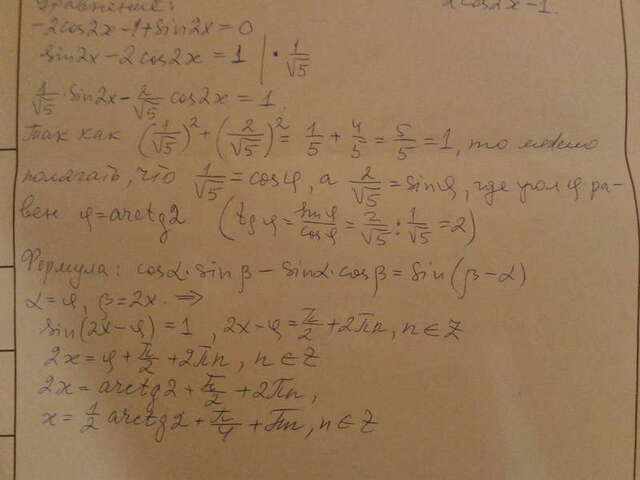 Уравнение: 2cos2x-1.
-2cos2x-1+sin2x=0
sin2x-2cos2x=1 | · 1/√5
1/√5 · sin2x - 2/√5 cos2x = 1.
Так как (1/√5)² + (2/√5)² = 1/5 + 4/5 = 5/5 = 1, то можно
полагать, что 1/√5 = cosφ, а 2/√5 = sinφ, где угол φ ра-
вен φ=arctg2 (tgφ = sinφ/cosφ = 2/√5 : 1/√5 = 2)
Формула: cosα·sinβ - sinα·cosβ = sin(β-α)
α=φ, β=2x. ⇒
sin(2x-φ)=1, 2x-φ = π/2 + 2πn, n∈Z
2x = φ + π/2 + 2πn, n∈Z
2x = arctg2 + π/2 + 2πn,
x = 1/2 arctg2 + π/4 + πn, n∈Z